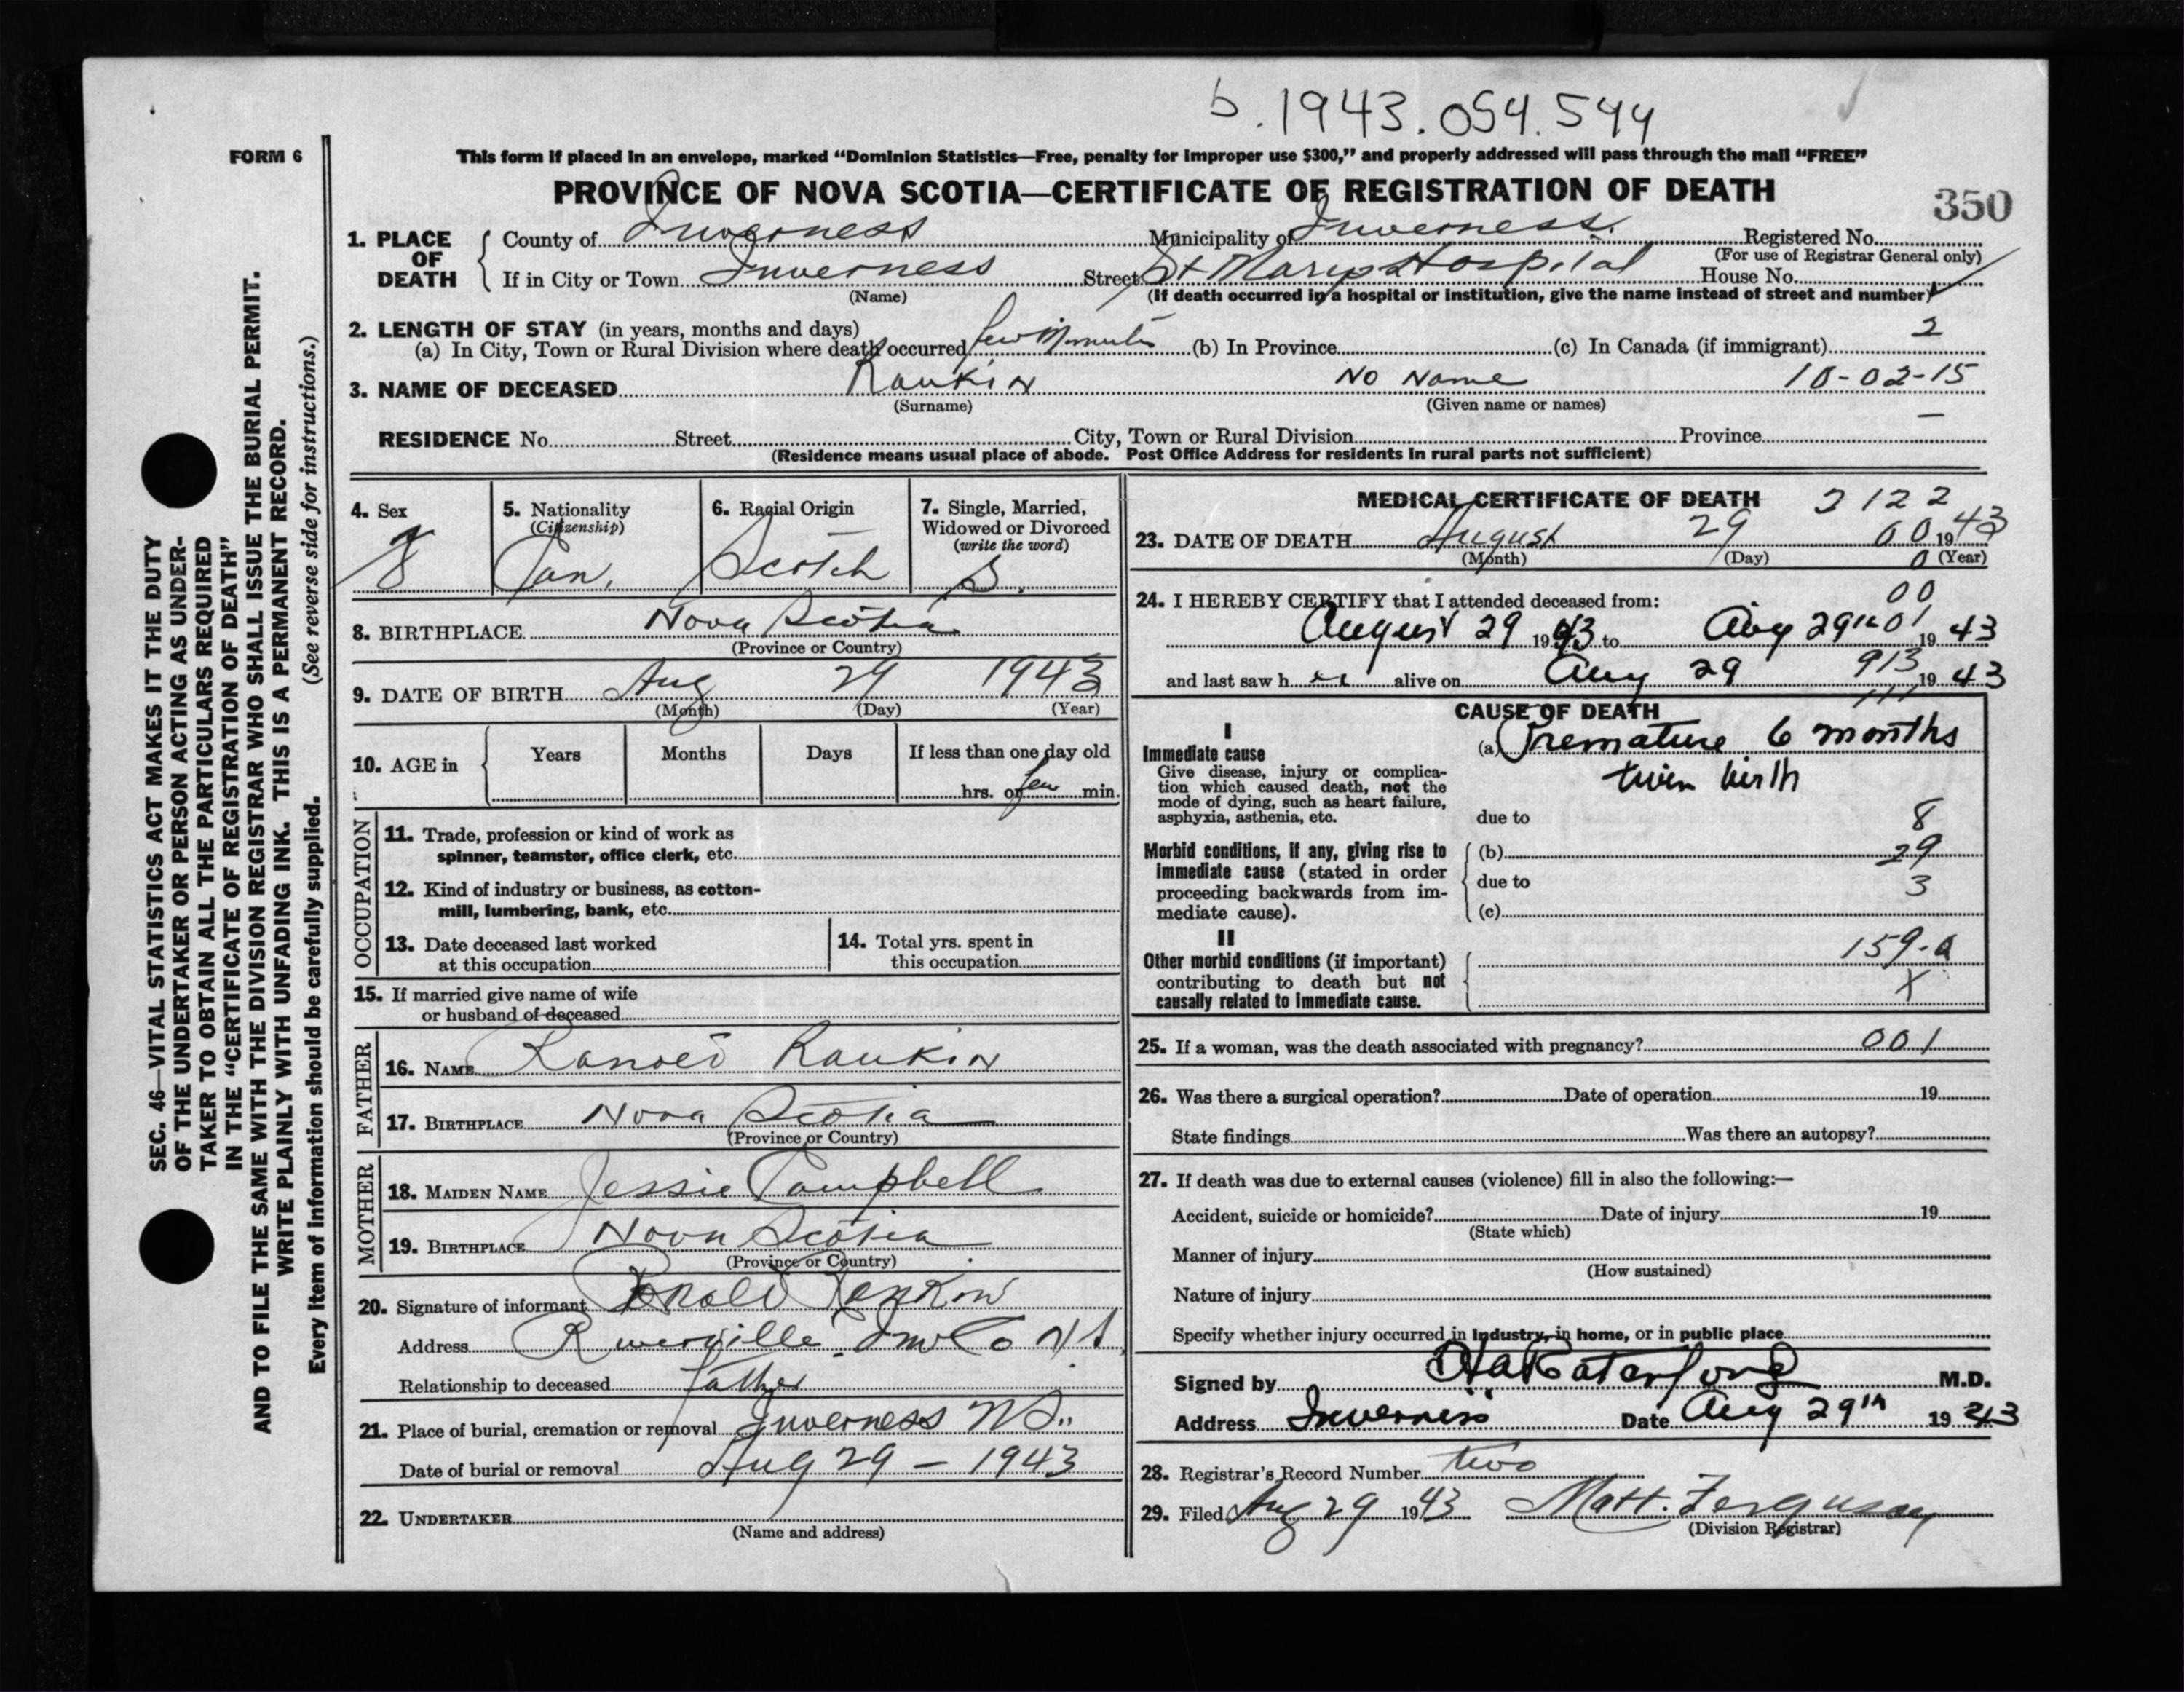 b.1943.054.544
FORM 6
This form if placed in an envelope, marked "Dominion Statistics—Free, penalty for improper use $300," and properly addressed will pass through the mail "FREE"
PROVINCE OF NOVA SCOTIA—CERTIFICATE OF REGISTRATION OF DEATH
350
1. PLACE OF DEATH County of Inverness Municipality of Inverness. Registered No.
(For use of Registrar General only)
If in City or Town Inverness Street St Marys Hospital House No.
(Name) (If death occurred in a hospital or institution, give the name instead of street and number)
2. LENGTH OF STAY (in years, months and days) 2
(a) In City, Town or Rural Division where death occurred few Minutes (b) In Province (c) In Canada (if immigrant)
3. NAME OF DECEASED Rankin No Name 10-02-15
(Surname) (Given name or names)
RESIDENCE No. Street City, Town or Rural Division Province —
(Residence means usual place of abode. Post Office Address for residents in rural parts not sufficient)
4. Sex 5. Nationality 6. Racial Origin 7. Single, Married, Widowed or Divorced
(Citizenship) (write the word)
Can. Scotch S.
8. BIRTHPLACE Nova Scotia
(Province or Country)
9. DATE OF BIRTH Aug 29 1943
(Month) (Day) (Year)
10. AGE in Years Months Days If less than one day old
hrs. or few min.
OCCUPATION
11. Trade, profession or kind of work as
spinner, teamster, office clerk, etc.
12. Kind of industry or business, as cotton-
mill, lumbering, bank, etc.
13. Date deceased last worked
at this occupation
14. Total yrs. spent in
this occupation
15. If married give name of wife
or husband of deceased
FATHER
16. NAME Ranold Rankin
17. BIRTHPLACE Nova Scotia
(Province or Country)
MOTHER
18. MAIDEN NAME Jessie Campbell
19. BIRTHPLACE Nova Scotia
(Province or Country)
20. Signature of informant Ronald Rankin
Address Riverville Inv Co N S
Relationship to deceased Father
21. Place of burial, cremation or removal Inverness N S.
Date of burial or removal Aug 29 - 1943
22. UNDERTAKER
(Name and address)
MEDICAL CERTIFICATE OF DEATH 2122
23. DATE OF DEATH August 29 00 1943
(Month) (Day) 0 (Year)
24. I HEREBY CERTIFY that I attended deceased from: 00
August 29 1943 to Aug 29th 01 1943
and last saw h er alive on Aug 29 913 1943
111
CAUSE OF DEATH
I
Immediate cause (a) Premature 6 months
Give disease, injury or complica-
tion which caused death, not the
mode of dying, such as heart failure,
asphyxia, asthenia, etc.
twin birth
due to 8
Morbid conditions, if any, giving rise to
immediate cause (stated in order
proceeding backwards from im-
mediate cause).
(b) 29
due to 3
(c)
II
Other morbid conditions (if important)
contributing to death but not
causally related to immediate cause.
159-a
X
25. If a woman, was the death associated with pregnancy? 001
26. Was there a surgical operation? Date of operation 19
State findings Was there an autopsy?
27. If death was due to external causes (violence) fill in also the following:—
Accident, suicide or homicide? Date of injury 19
(State which)
Manner of injury
(How sustained)
Nature of injury
Specify whether injury occurred in industry, in home, or in public place
Signed by M.D.
Address Inverness Date Aug 29th 1943
28. Registrar's Record Number two
29. Filed Aug 29 1943 Matt. Ferguson
(Division Registrar)
SEC. 46—VITAL STATISTICS ACT MAKES IT THE DUTY
OF THE UNDERTAKER OR PERSON ACTING AS UNDER-
TAKER TO OBTAIN ALL THE PARTICULARS REQUIRED
IN THE "CERTIFICATE OF REGISTRATION OF DEATH"
AND TO FILE THE SAME WITH THE DIVISION REGISTRAR WHO SHALL ISSUE THE BURIAL PERMIT.
WRITE PLAINLY WITH UNFADING INK. THIS IS A PERMANENT RECORD.
Every item of information should be carefully supplied. (See reverse side for instructions.)